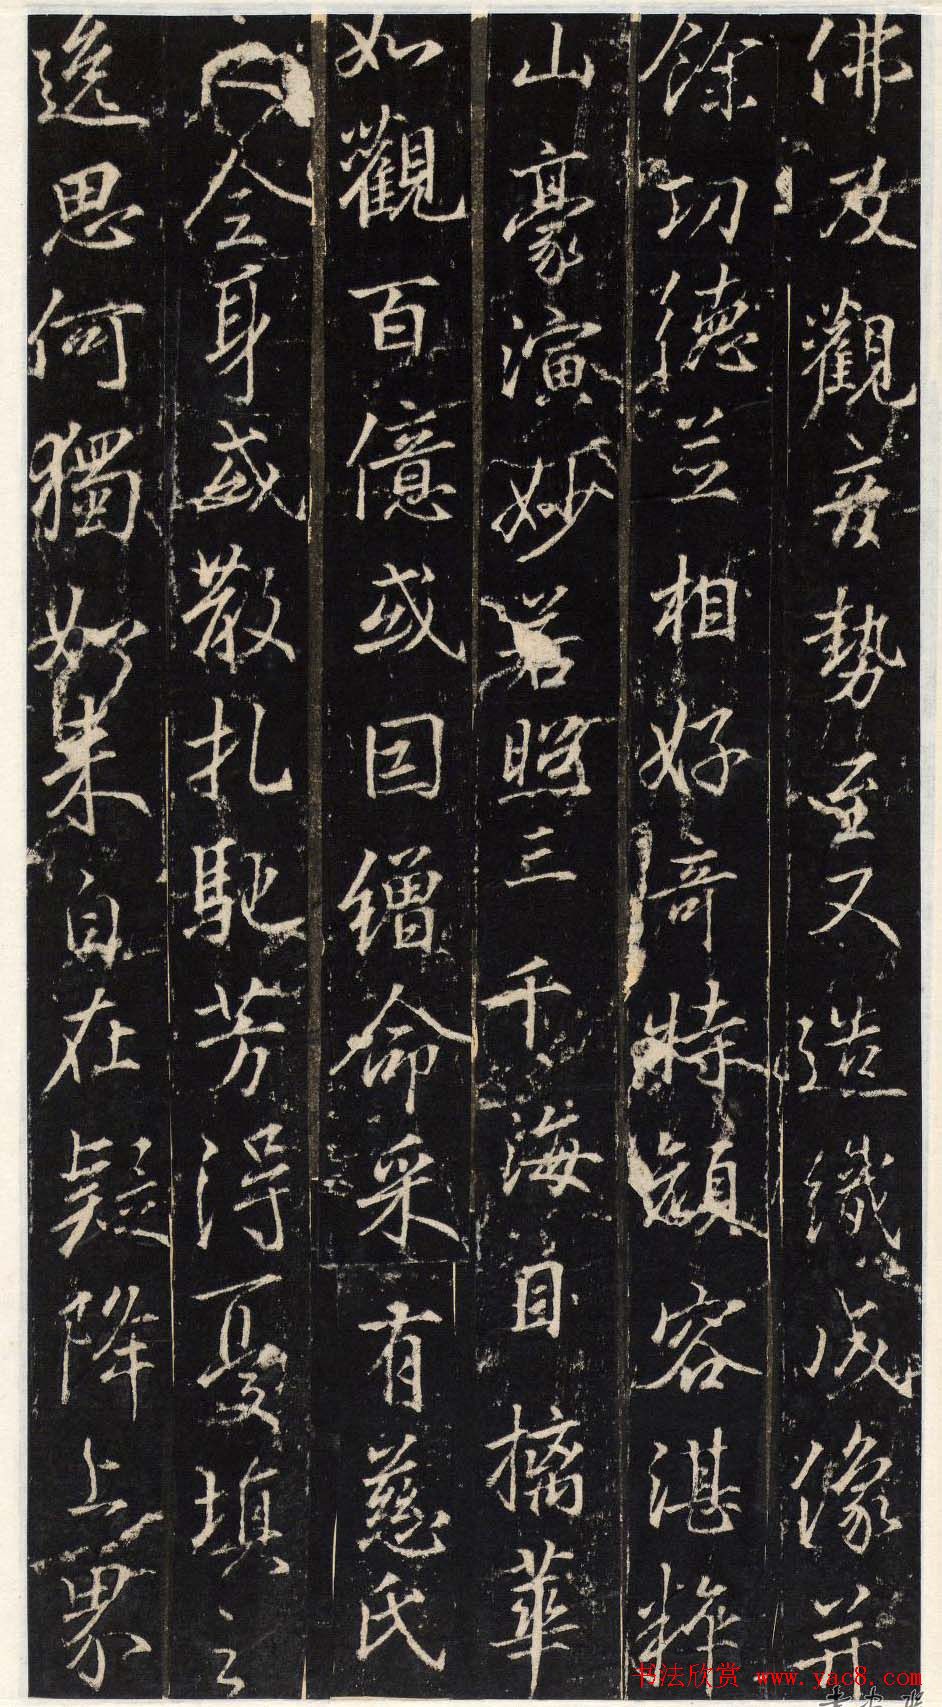 佛及觀音勢至又造織成像并
餘功德並相好奇特顔容湛粹
山豪演妙若照三千海目摛華
如觀百億或因繒命采有慈氏
之全身或散札馳芳得憂填之
逸思何獨如來自在疑降上界
书法欣赏 www.yac8.com